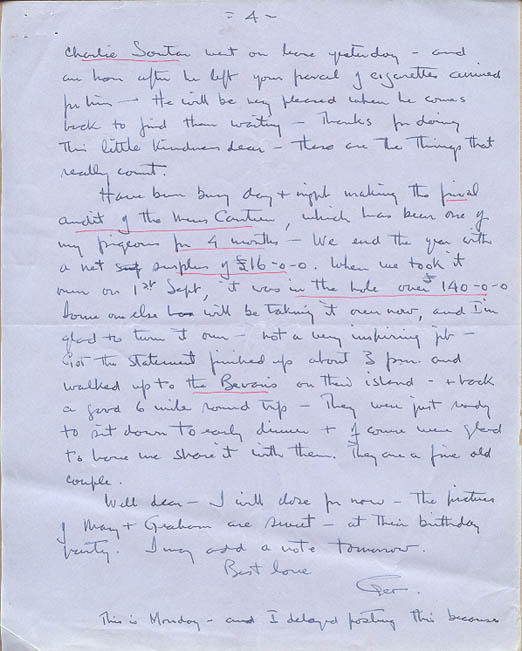 - 4 -
Charlie Soutar went on leave yesterday - and
an hour after he left your parcel of cigarettes arrived
for him - He will be very pleased when he comes
back to find them waiting - Thanks for doing
this little kindness dear - these are the things that
really count.
Have been busy day + night making the final
audit of the Mens Canteen, which has been one of
my pigeons for 4 months - We end the year with
a net surplus of £16-0-0. When we took it
over on 1st Sept, it was in the hole over £140-0-0
Some one else will be taking it over now, and I'm
glad to turn it over - not a very inspiring job -
Got the statement finished up about 3 pm. and
walked up to the Bevans on their island - + back
a good 6 mile round trip - They were just ready
to sit down to early dinner + of course were glad
to have me share it with them. They are a fine old
couple.
Well dear - I will close for now - The pictures
of Mary + Graham are sweet - at their birthday
party. I may add a note tomorrow.
Best love
Geo.
This is Monday - and I delayed posting this because